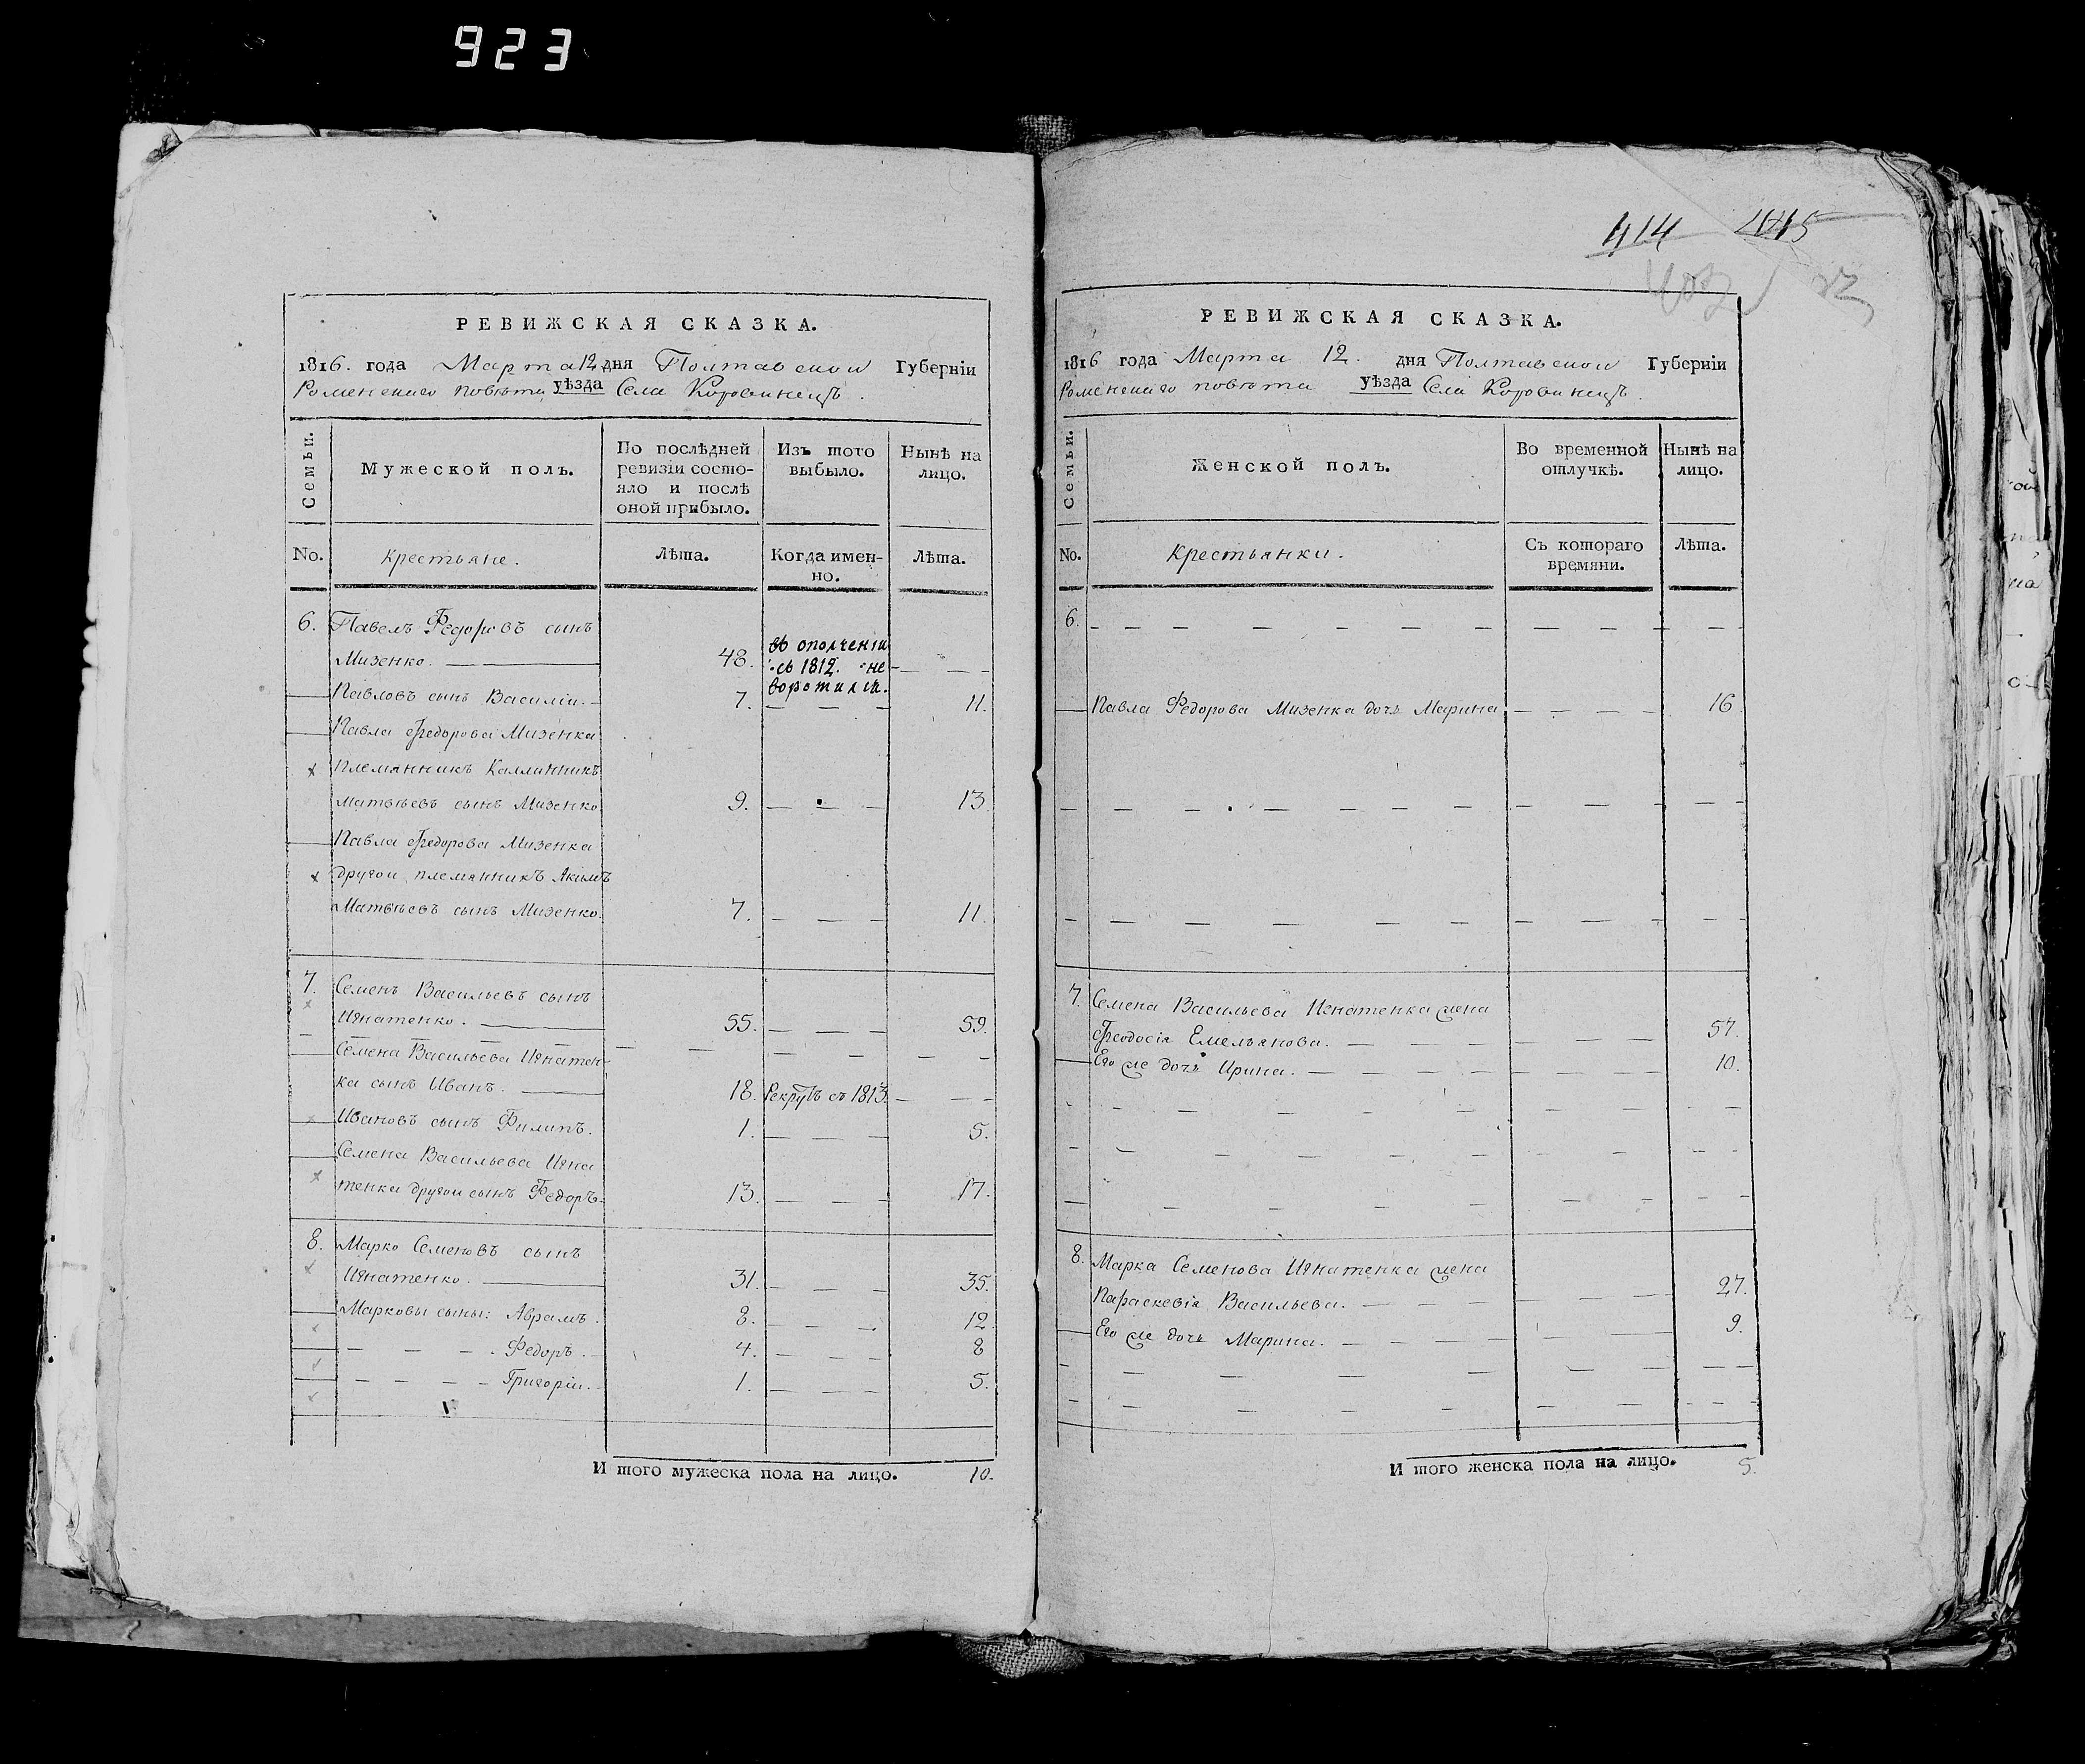 923
РЕВИЖСКАЯ СКАЗКА.
1816. года Марта 12 дня Полтавскои Губерніи
Роменскаго повѣта уѣзда Села Коровинецъ.
Семьи.
Мужеской полъ.
По послѣдней ревизіи состо-
яло и послѣ
оной прибыло.
Изъ того
выбыло.
Нынѣ на
лицо.
No.
крестьяне.
Лѣта.
Когда имен-
но.
Лѣта.
6. Павелъ Федоровъ сынъ
Мизенко. 48. въ ополченіи
съ 1812. не
воротился.
Павловъ сынъ Василіи. 7. 11.
Павла Федорова Мизенка
племянникъ Каллинникъ
матвѣевъ сынъ Мизенко 9. 13.
Павла Федорова Мизенка
другои племянникъ Акимъ
Матвѣевъ сынъ Мизенко. 7. 11.
7. Семенъ Васильевъ сынъ
Игнатенко. 55. 59.
Семена Васильева Игнатен-
ка сынъ Иванъ. 18. Рекрутъ съ 1813.
Ивановъ сынъ Филипъ. 1. 5.
Семена Васильева Игна
тенка другои сынъ Федоръ. 13. 17.
8. Марко Семеновъ сынъ
Игнатенко. 31. 35.
Марковы сыны: Аврамъ. 8. 12.
Федоръ. 4. 8
Григоріи. 1. 5.
И того мужеска пола на лицо. 10.
414 415
РЕВИЖСКАЯ СКАЗКА.
1816 года Марта 12. дня Полтавскои Губерніи
Роменскаго повѣта уѣзда Села Коровинецъ.
Семьи.
Женской полъ.
Во временной
отлучкѣ.
Нынѣ на
лицо.
No.
Крестьянки.
Съ котораго
времяни.
Лѣта.
6.
Павла Федорова Мизенка дочь Марина 16
7. Семена Васильева Игнатенка жена
Феодосія Емельянова. 57.
Его же дочь Ирина. 10.
8. Марка Семенова Игнатенка жена
Параскевія Васильева. 27.
Его же дочь Марина. 9.
И того женска пола на лицо. 5.